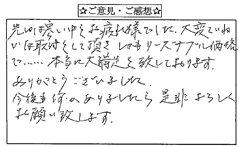 ☆ご意見・ご感想☆
先日は寒い中をお疲れ様でした。大変ていね
いな取付をして頂きしかもリーズナブルな価格
で……本当に大満足を致しております。
ありがとうございました。
今後も何かありましたら是非よろしく
お願い致します。